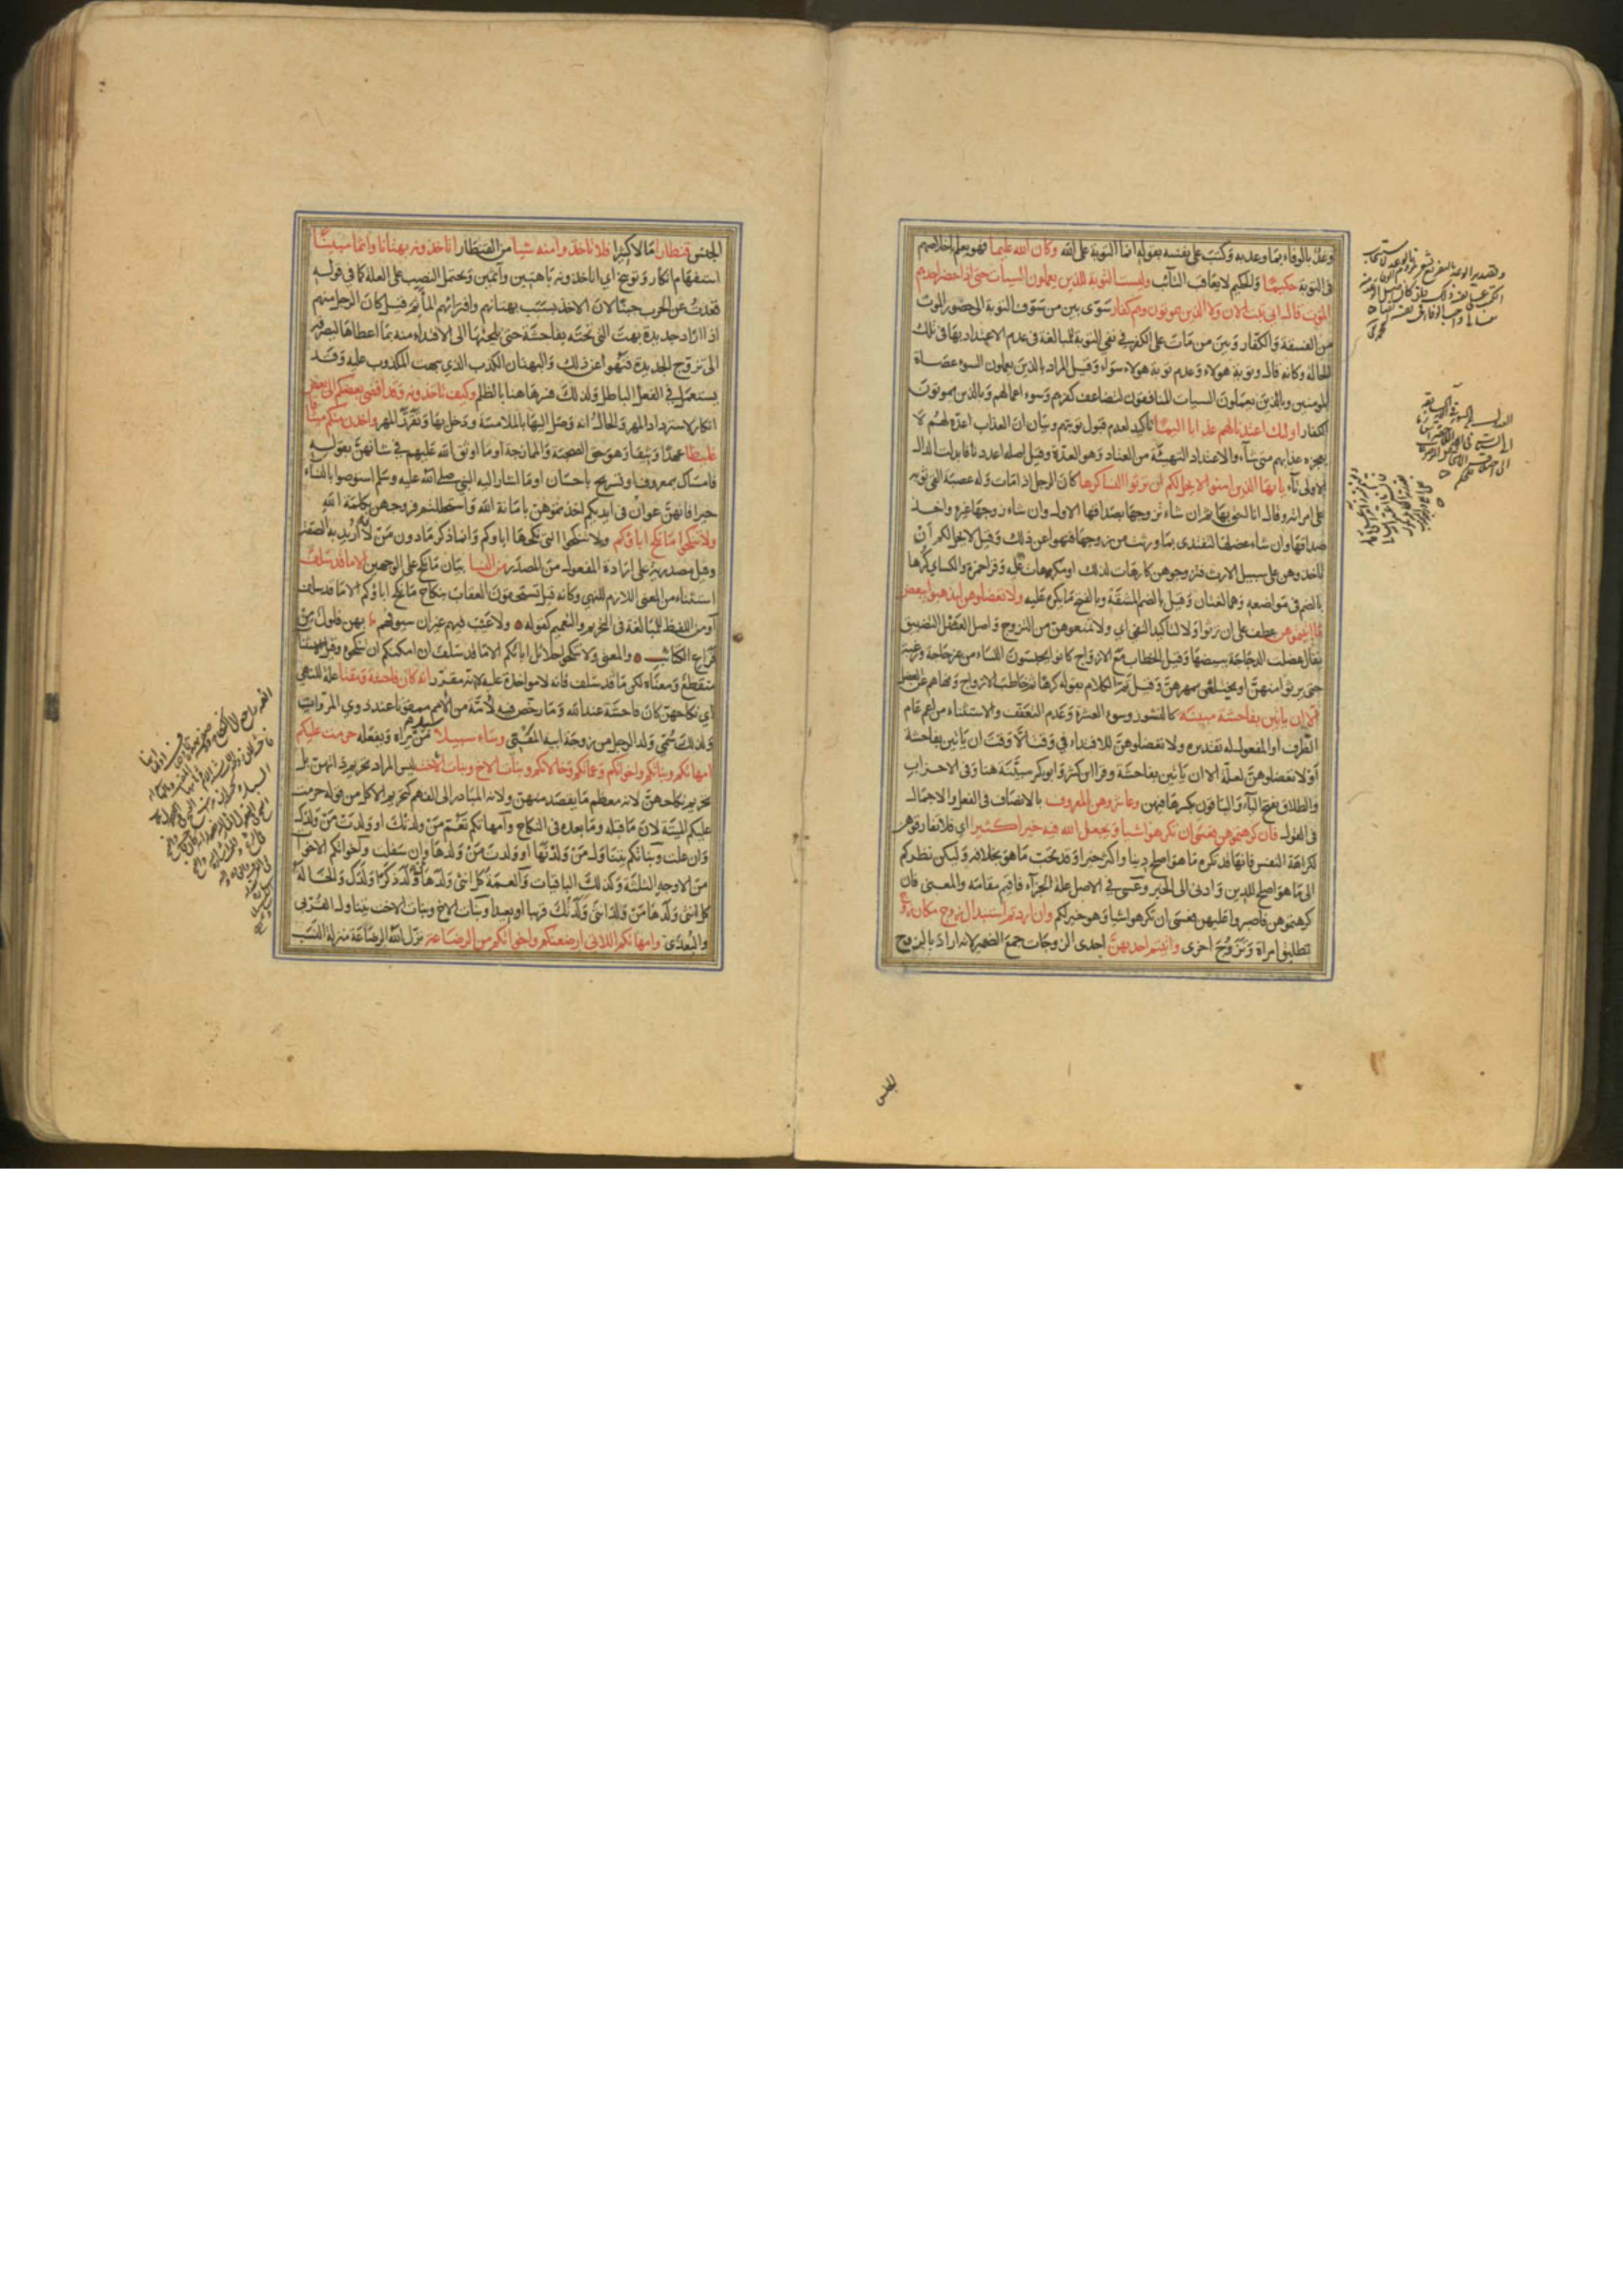 وعد بالوفاء بما وعد به وكتب على نفسه بقوله انما التوبة على الله وكان الله عليما فهو يعلم اخلاصهم
فى التوبة حكيما والحكيم لا يعاقب التائب وليست التوبة للذين يعملون السيات حتى اذا حضر احدهم
الموت قال انى تبت الان ولا الذين يموتون وهم كفار سوى بين من سوف التوبة الى حضور الموت
من الفسقة والكفار وبين من مات على الكفر في نفي التوبة للمبالغة فى عدم الاعتداد بها فى تلك
الحالة وكانه قال وتوبة هولاء وعدم توبة هولاء سواء وقيل المراد بالذين يعملون السوء عصاة
المومنين وبالذين يعملون السيات المنافقون لتضاعف كفرهم وسوء اعمالهم وبالذين يموتون
الكفار اولئك اعتدنا لهم عذابا اليما تاكيد لعدم قبول توبتهم وبيان ان العذاب اعده لهم لا
يعجزه عذابهم متى شاء والاعتداد التهيئة من العتاد وهو العدة وقيل اصله اعددنا فابدلت الدال
الاولى تاء يا ايها الذين امنوا لا يحل لكم ان ترثوا النسا كرها كان الرجل اذا مات وله عصبة القى ثوبه
على امراته وقال انا احق بها ثم ان شاء تزوجها بصداقها الاول وان شاء زوجها غيره واخذ
صداقها وان شاء عضلها لتفتدى بما ورثت من زوجها فنهوا عن ذلك وقيل لا يحل لكم ان
تاخذوهن على سبيل الارث فتزوجوهن كارهات لذلك او مكرهات عليه وقرا حمزة والكساي كرها
بالضم فى مواضعه وهما لغتان وقيل بالضم المشقة وبالفتح ما يكره عليه ولا تعضلوهن لتذهبوا ببعض
ما اتيتموهن عطف على ان ترثوا ولا لتاكيد النفى اي ولا تمنعوهن من التزوج واصل العضل التضييق
يقال عضلت الدجاجة ببيضها وقيل الخطاب مع الازواج كانوا يحبسون النساء من غير حاجة ورغبة
حتى يرثوا منهن او يختلعن بمهورهن وقيل تم الكلام بقوله كرها ثم خاطب الازواج ونهاهم عن العضل
الا ان ياتين بفاحشة مبينة كالنشوز وسوء العشرة وعدم التعفف والاستثناء من اعم عام
الظرف او المفعول له تقديره ولا تعضلوهن للافتداء فى وقت الا وقت ان ياتين بفاحشة
او لا تعضلوهن لعلة الا ان ياتين بفاحشة وقرا ابن كثير وابو بكر مبينة هنا وفى الاحزاب
والطلاق بفتح الياء والباقون بكسرها فيهن وعاشروهن بالمعروف بالانصاف فى الفعل والاجمال
فى القول فان كرهتموهن فعسى ان تكرهوا شيا ويجعل الله فيه خيرا كثيرا اي فلا تفارقوهن
لكراهة النفس فانها قد تكره ما هو اصلح دينا واكثر خيرا وقد تحب ما هو بخلافه وليكن نظركم
الى ما هو اصلح للدين وادنى الى الخير وعسى في الاصل علة الجزاء فاقيم مقامه والمعنى فان
كرهتموهن فاصبروا عليهن فعسى ان تكرهوا شيا وهو خير لكم وان اردتم استبدال زوج مكان زوج
تطليق امراة وتزوج اخرى واتيتم احديهن احدى الزوجات جمع الضمير لانه اراد بالزوج
الجنس
الجنس قنطارا مالا كثيرا فلا تاخذوا منه شيا من القنطار اتاخذونه بهتانا واثما مبينا
استفهام انكار وتوبيخ اي اتاخذونه باهتين واثمين ويحتمل النصب على العلة كما فى قوله
قعدت عن الحرب جبنا لان الاخذ بسبب بهتانهم واقترافهم الماثم قيل كان الرجل منهم
اذا اراد جديدة بهت التى تحته بفاحشة حتى يلجئها الى الافتداء منه بما اعطاها ليصرفه
الى تزوج الجديدة فنهوا عن ذلك والبهتان الكذب الذي يبهت المكذوب عليه وقد
يستعمل في الفعل الباطل ولذلك فسرها هنا بالظلم وكيف تاخذونه وقد افضى بعضكم الى بعض
انكار لاسترداد المهر والحال انه وصل اليها بالملامسة ودخل بها وتقرر المهر واخذن منكم ميثاقا
غليظا عهدا وثيقا وهو حق الصحبة والممازجة او ما اوثق الله عليهم في شانهن بقوله
فامساك بمعروف او تسريح باحسان او ما اشار اليه النبي صلى الله عليه وسلم استوصوا بالنساء
خيرا فانهن عوان فى ايديكم اخذتموهن بامانة الله واستحللتم فروجهن بكلمة الله
ولا تنكحوا ما نكح اباؤكم ولا تنكحوا التى نكحها اباوكم وانما ذكر ما دون من لانه اريد به الصفة
وقيل ما مصدرية على ارادة المفعول من المصدر من النسا بيان ما نكح على الوجهين الا ما قد سلف
استثناء من المعنى اللازم للنهي وكانه قيل تستحقون العقاب بنكاح ما نكح اباؤكم الا ما قد سلف
او من اللفظ للمبالغة فى التحريم والتعميم كقوله ولا عيب فيهم غير ان سيوفهم بهن فلول من
قراع الكتائب والمعنى ولا تنكحوا حلائل ابائكم الا ما قد سلف ان امكنكم ان تنكحوه وقيل الاستثنا
منقطع ومعناه لكن ما قد سلف فانه لا مواخذة عليه لا انه مقرر انه كان فاحشة ومقتا علة للنهي
اي نكاحهن كان فاحشة عند الله وما رخص فيه لامة من الامم ممقوتا عند ذوي المروات
ولذلك سمي ولد الرجل من زوجة ابيه المقتى وساء سبيلا سبيل من يراه ويفعله حرمت عليكم
امهاتكم وبناتكم واخواتكم وعماتكم وخالاتكم وبنات الاخ وبنات الاخت ليس المراد تحريم ذاتهن بل
تحريم نكاحهن لانه معظم ما يقصد منهن ولانه المتبادر الى الفهم كتحريم الاكل من قوله حرمت
عليكم الميتة لان ما قبله وما بعده فى النكاح وامهاتكم تعم من ولدتك او ولدت من ولدك
وان علت وبناتكم يتناول من ولدتها او ولدت من ولدها وان سفلت واخواتكم الاخوات
من الاوجه الثلثة وكذلك الباقيات والعمة كل انثى ولدها من ولد ذكرا ولدك والخالة
كل انثى ولدها من ولد انثى ولدتك قريبا او بعيدا وبنات الاخ وبنات الاخت يتناول القربى
والبعدى وامهاتكم اللاتى ارضعنكم واخواتكم من الرضاعة نزل الله الرضاعة منزلة النسب